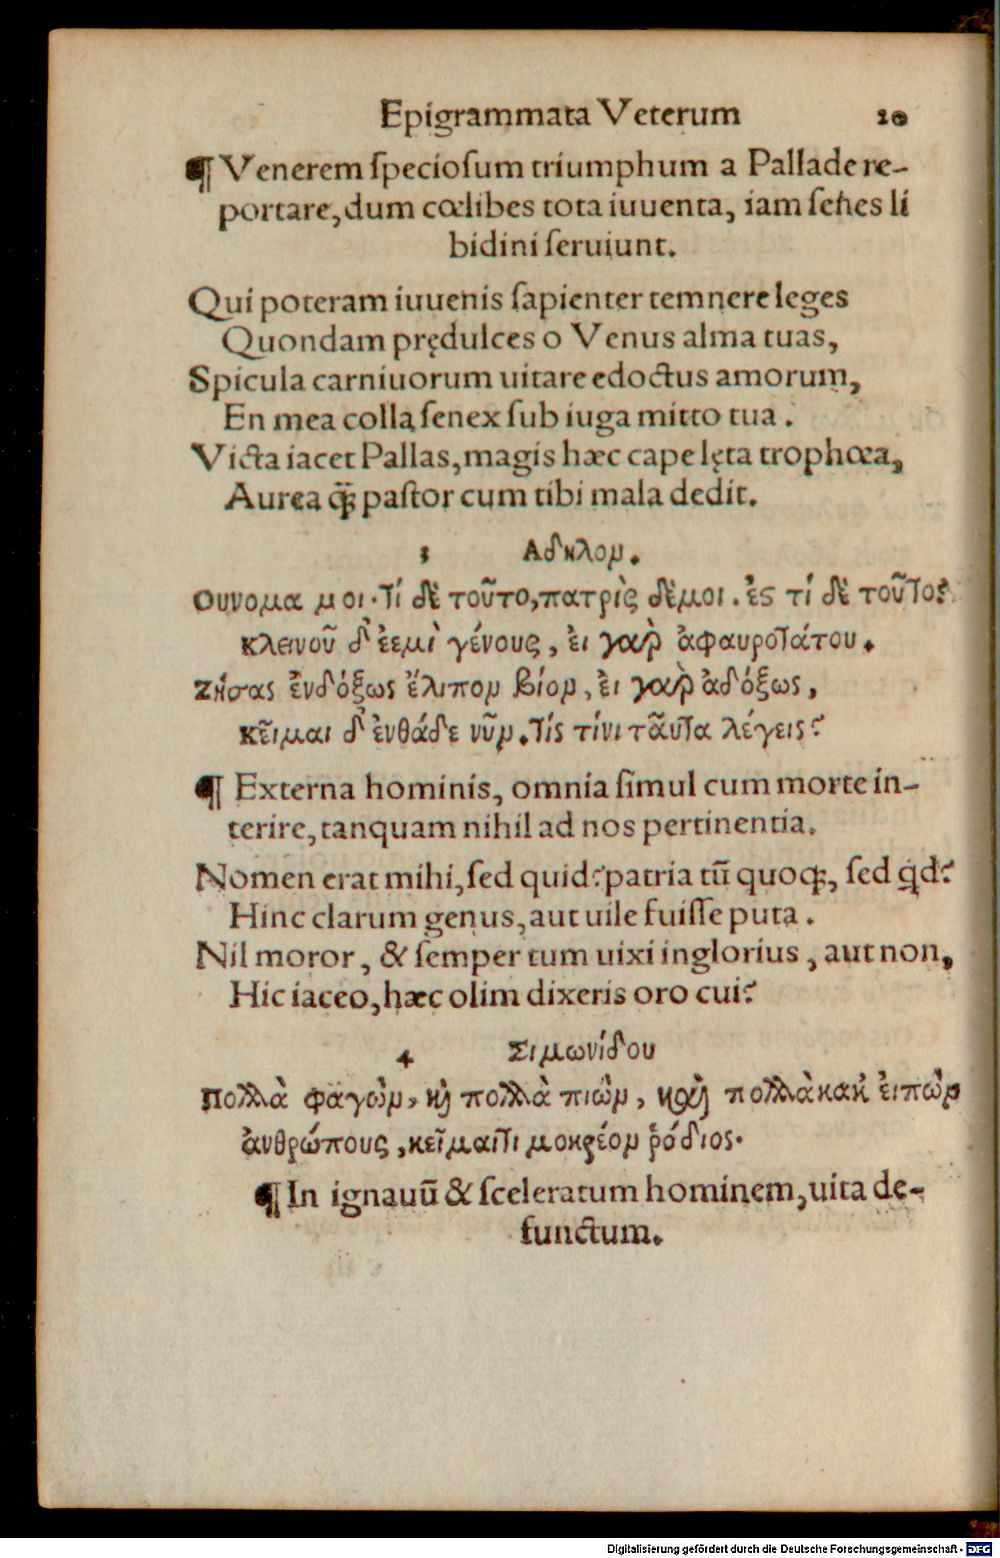 Epigrammata Veterum 20
¶ Venerem ſpecioſum triumphum a Pallade re-
portare, dum cœlibes tota iuuenta, iam ſenes li
bidini ſeruiunt.
Qui poteram iuuenis ſapienter temnere leges
Quondam prędulces o Venus alma tuas,
Spicula carniuorum uitare edoctus amorum,
En mea colla ſenex ſub iuga mitto tua.
Victa iacet Pallas, magis hæc cape lęta trophœa,
Aurea q̃ꝫ paſtor cum tibi mala dedit.
3 Αδηλομ.
Ουνομα μοι. τί δὲ τοῦτο, πατρὶς δέμοι. ἐς τί δὲ τοῦτο;
κλεινοῦ δ' ἐεμὶ γένους, ἐι γαρ ἀφαυροτάτου.
Ζήσας ἐνδόξως ἔλιπομ βίομ, ἐι γαρ ἀδόξως,
κεῖμαι δ' ἐνθάδε νῦμ. τίς τίνι ταῦτα λέγεις;
¶ Externa hominis, omnia ſimul cum morte in-
terire, tanquam nihil ad nos pertinentia.
Nomen erat mihi, ſed quid? patria tũ quoqꝫ, ſed qd?
Hinc clarum genus, aut uile fuiſſe puta.
Nil moror, & ſemper tum uixi inglorius, aut non,
Hic iaceo, hæc olim dixeris oro cui?
4 Σιμωνίδου
Πολλὰ φαγὼμ, κỳ πολλὰ πιὼμ, καὶ πολλὰ κακ' ἐιπὼμ
ἀνθρώπους, κεῖμαι τιμοκρέομ ῥόδιος.
¶ In ignauũ & ſceleratum hominem, uita de-
functum.
Digitalisierung gefördert durch die Deutsche Forschungsgemeinschaft - DFG